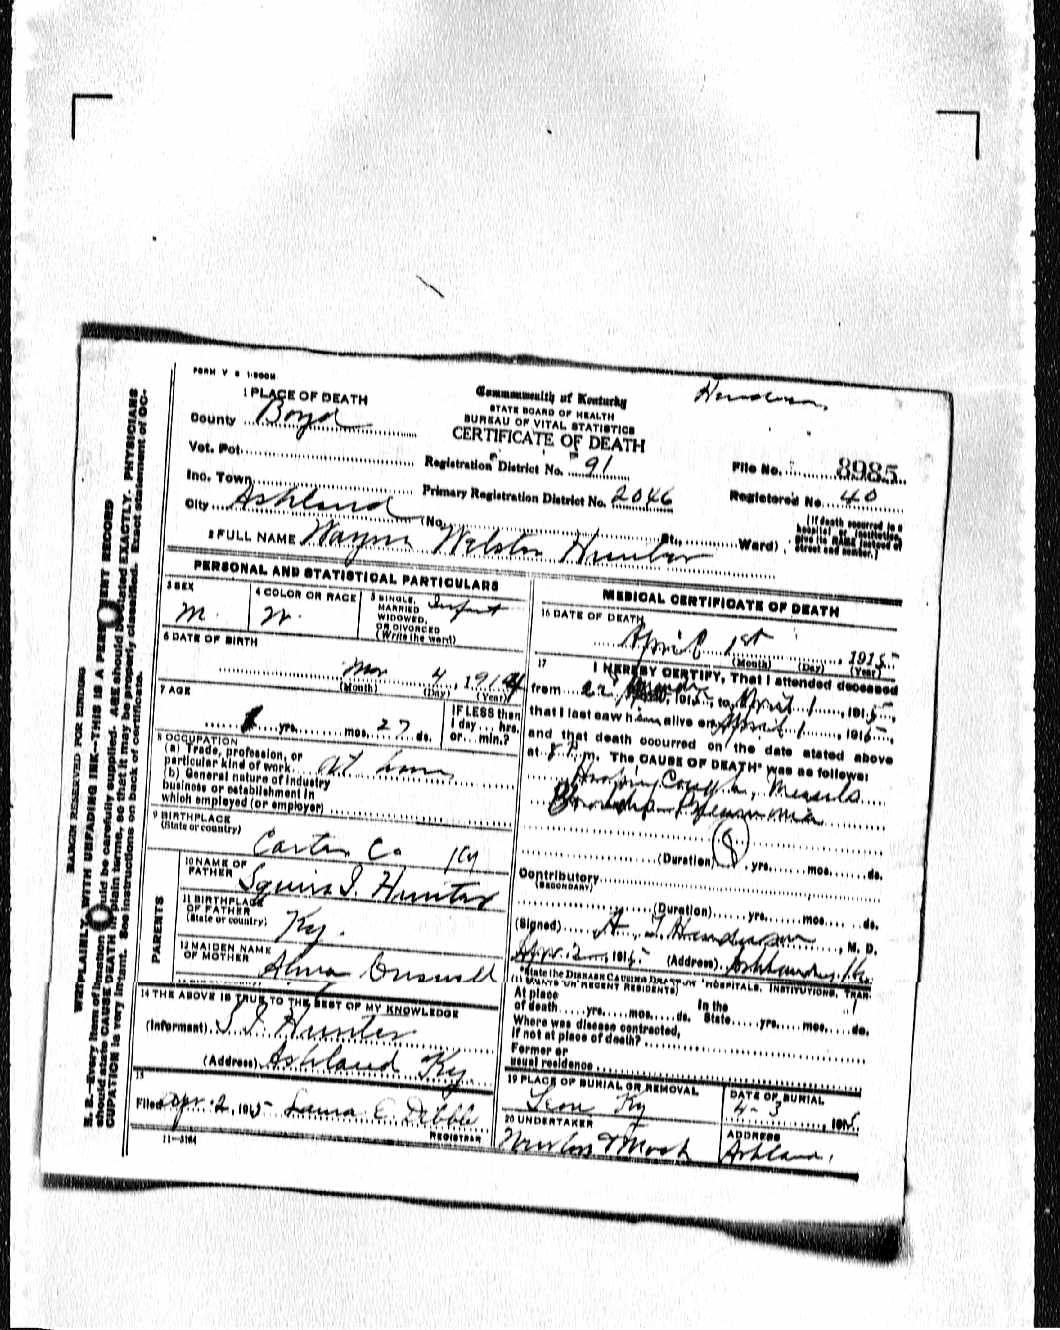 Henderson
FORM V S 1-500M
1 PLACE OF DEATH
County Boyd
Vot. Pct.
Inc. Town
City Ashland (No. St., Ward)
Commonwealth of Kentucky
STATE BOARD OF HEALTH
BUREAU OF VITAL STATISTICS
CERTIFICATE OF DEATH
Registration District No. 91
Primary Registration District No. 2046
File No. 8985
Registered No. 40
[If death occurred in a
hospital or institution,
give its NAME instead of
street and number.]
2 FULL NAME Wayne Welston Hunter
PERSONAL AND STATISTICAL PARTICULARS
3 SEX
M.
4 COLOR OR RACE
W.
5 SINGLE,
MARRIED
WIDOWED,
OR DIVORCED
(Write the word)
Infant
6 DATE OF BIRTH
Mar 4, 1914
(Month) (Day) (Year)
7 AGE
1 yrs. mos. 27 ds.
IF LESS than
1 day... hrs.
or... min.?
8 OCCUPATION
(a) Trade, profession, or
particular kind of work At home
(b) General nature of industry
business or establishment in
which employed (or employer)
9 BIRTHPLACE
(State or country)
Carter Co Ky
PARENTS
10 NAME OF
FATHER Squire I. Hunter
11 BIRTHPLACE
OF FATHER
(State or country) Ky.
12 MAIDEN NAME
OF MOTHER Alma
14 THE ABOVE IS TRUE TO THE BEST OF MY KNOWLEDGE
(Informant) S I Hunter
(Address) Ashland Ky
15
Filed Apr 2, 1915 Laura C Dibble
REGISTRAR
11-3184
MEDICAL CERTIFICATE OF DEATH
16 DATE OF DEATH
April 1st, 1915
(Month) (Day) (Year)
17 I HEREBY CERTIFY, That I attended deceased
from 22 March, 1915, to April 1, 1915,
that I last saw him alive on April 1, 1915,
and that death occurred on the date stated above
at 8 P.m. The CAUSE OF DEATH* was as follows:
Hooping Cough, Measels
Broncho-Pneumonia
8
(Duration) yrs. mos. ds.
Contributory
(SECONDARY)
(Duration) yrs. mos. ds.
(Signed) A. J. Henderson, M. D.
Apr 2, 1915 (Address) Ashland, Ky.
*State the DISEASE CAUSING DEATH
HOSPITALS, INSTITUTIONS, TRAN-
OR RECENT RESIDENTS)
At place
of death yrs. mos. ds.
In the
State yrs. mos. ds.
Where was disease contracted,
if not at place of death?
Former or
usual residence
19 PLACE OF BURIAL OR REMOVAL
Leon Ky
DATE OF BURIAL
4-3, 1915
20 UNDERTAKER
ADDRESS
Ashland.
MARGIN RESERVED FOR BINDING
WRITE PLAINLY WITH UNFADING INK—THIS IS A PERMANENT RECORD
N. B.—Every item of information should be carefully supplied. AGE should be stated EXACTLY. PHYSICIANS
should state CAUSE OF DEATH in plain terms, so that it may be properly classified. Exact statement of OC-
CUPATION is very important. See instructions on back of certificate.